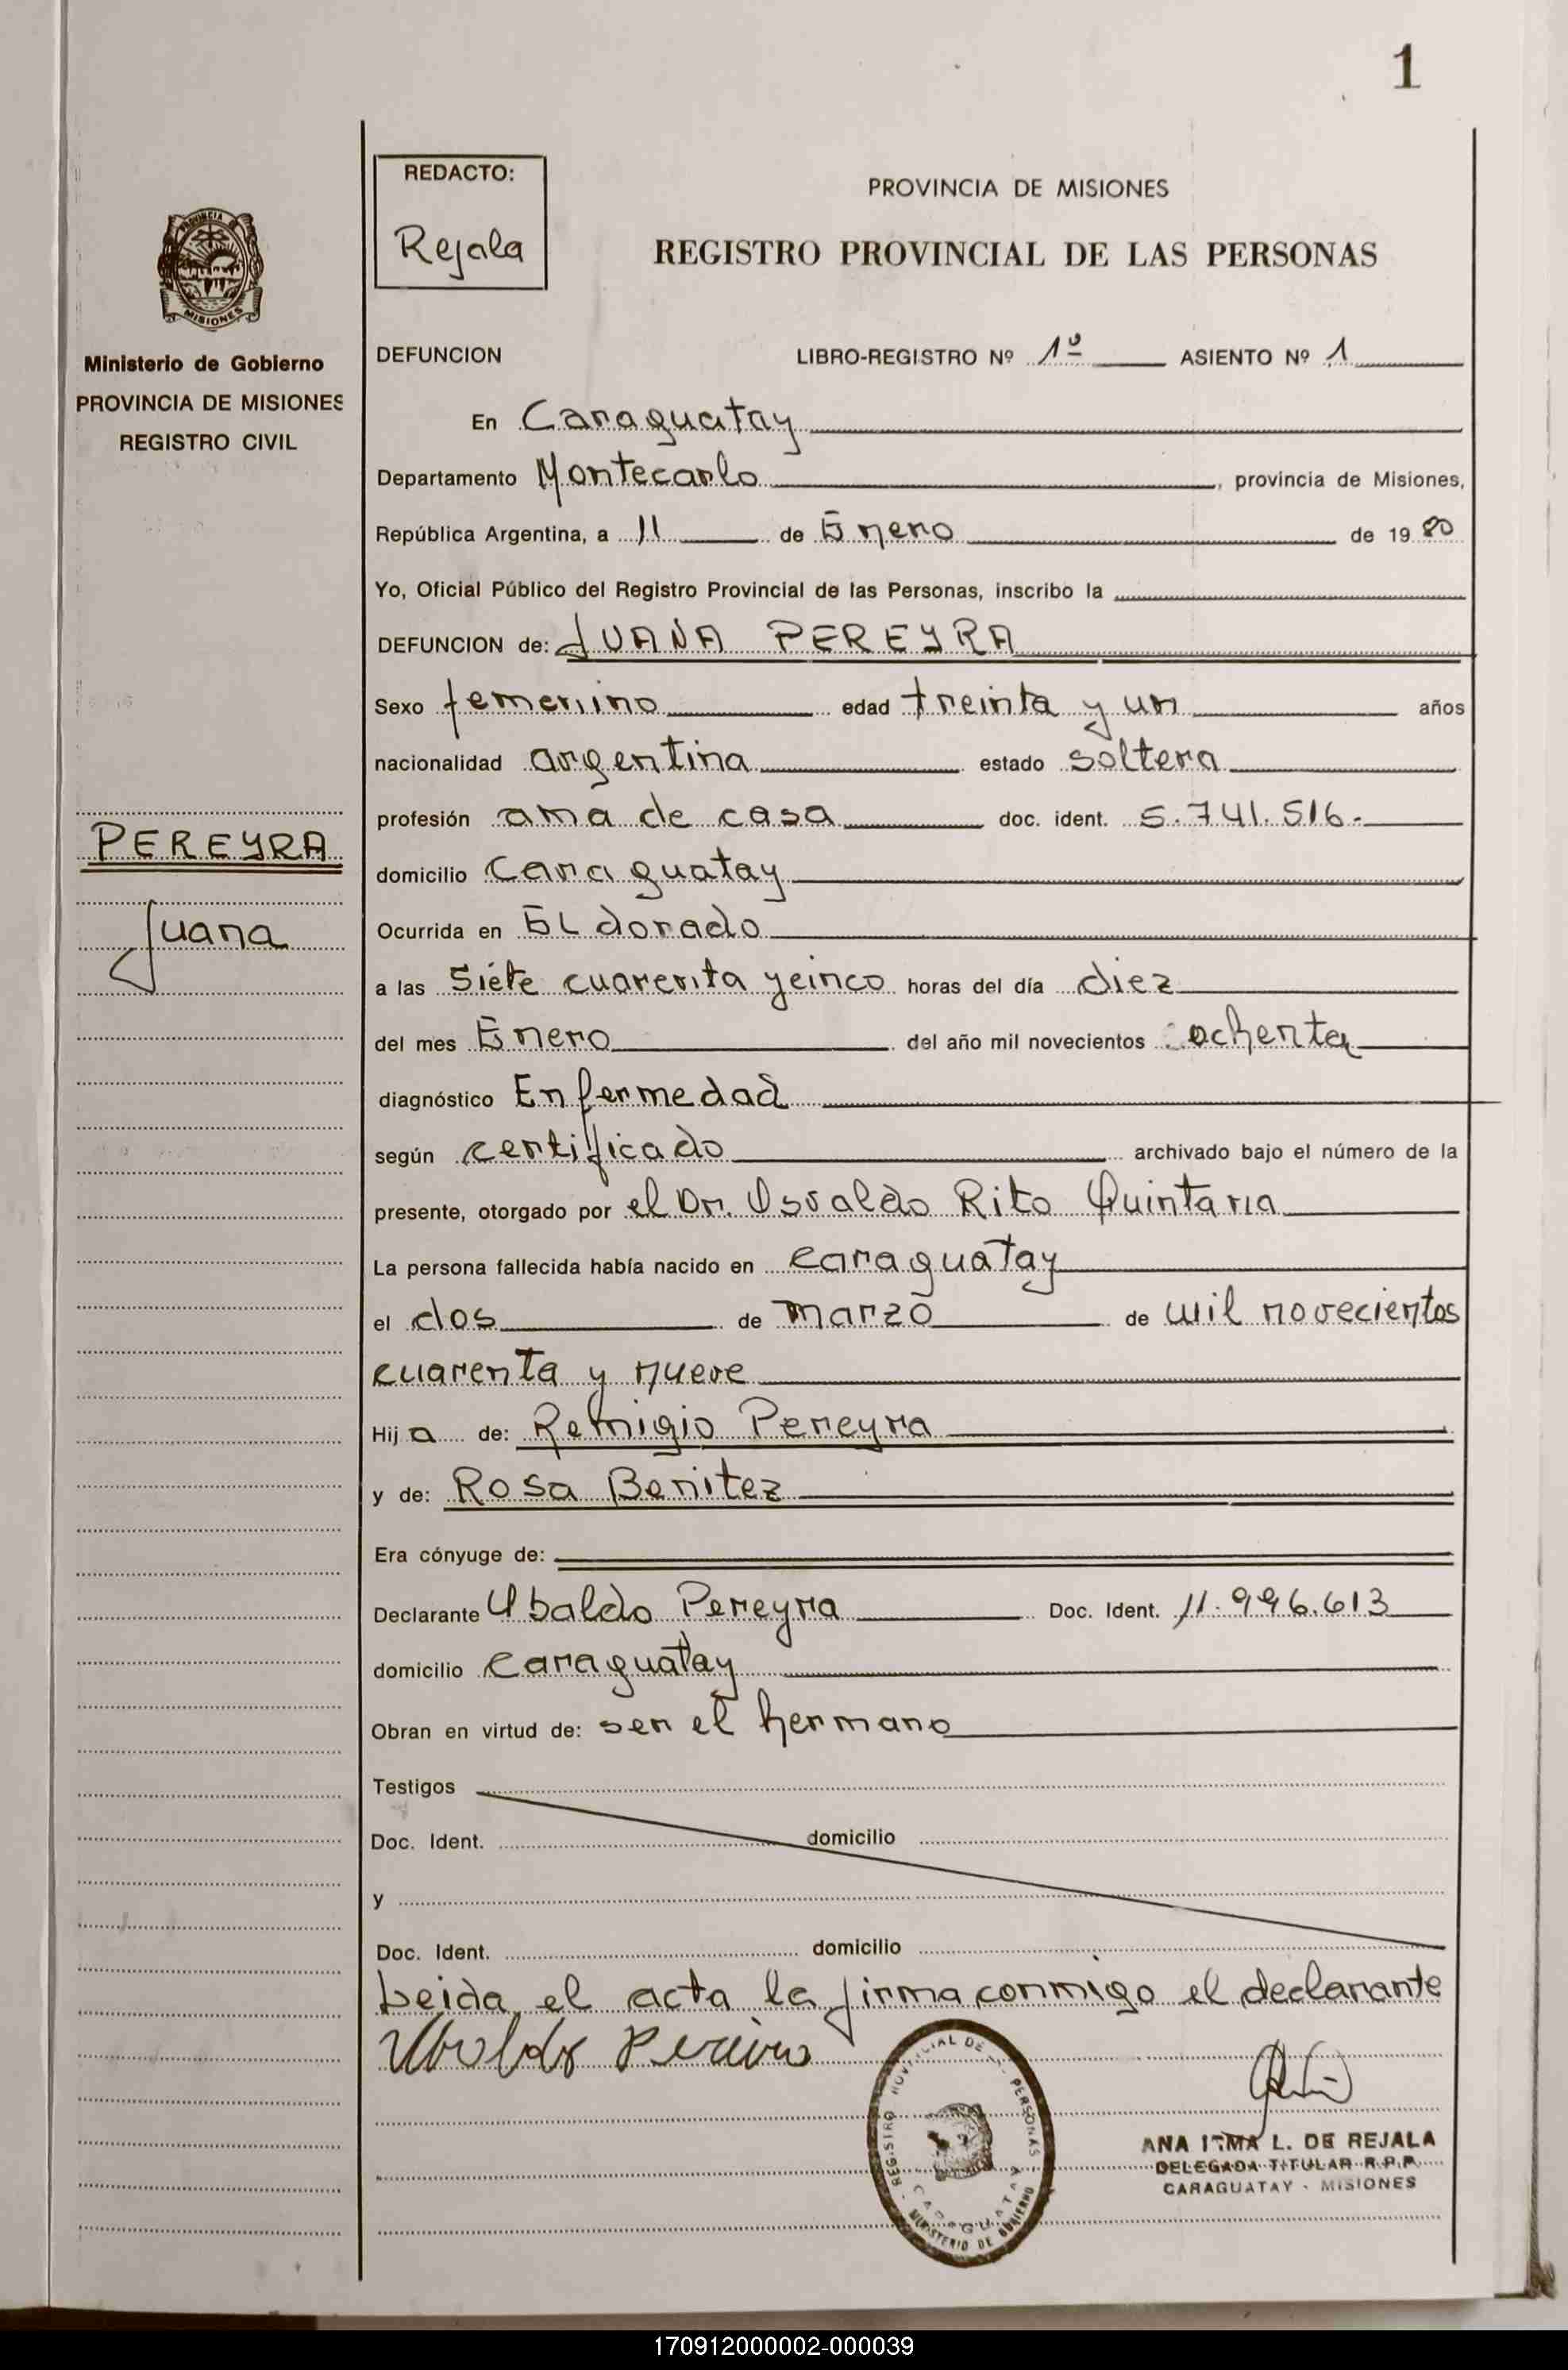 1
REDACTO:
Rejala
PROVINCIA DE MISIONES
REGISTRO PROVINCIAL DE LAS PERSONAS
PROVINCIA
MISIONES
Ministerio de Gobierno
PROVINCIA DE MISIONES
REGISTRO CIVIL
DEFUNCION LIBRO-REGISTRO Nº 1º ASIENTO Nº 1
En Caraguatay
Departamento Montecarlo, provincia de Misiones,
República Argentina, a 11 de Enero de 1980
Yo, Oficial Público del Registro Provincial de las Personas, inscribo la
DEFUNCION de: JUANA PEREYRA
Sexo femenino edad treinta y un años
nacionalidad argentina estado soltera
profesión ama de casa doc. ident. 5.741.516.
PEREYRA
Juana
domicilio Caraguatay
Ocurrida en ELdorado
a las Siete cuarenta y cinco horas del día diez
del mes Enero del año mil novecientos ochenta
diagnóstico Enfermedad
según certificado archivado bajo el número de la
presente, otorgado por el Dr. Osvaldo Rito Quintana
La persona fallecida había nacido en Caraguatay
el dos de marzo de mil novecientos
cuarenta y nueve
Hija de: Remigio Pereyra
y de: Rosa Benitez
Era cónyuge de:
Declarante Ubaldo Pereyra Doc. Ident. 11.996.613
domicilio Caraguatay
Obran en virtud de: ser el hermano
Testigos
Doc. Ident. domicilio
y
Doc. Ident. domicilio
Leida el acta la firma conmigo el declarante
REGISTRO PERSONAS
CARAGUATAY
MINISTERIO DE GOBIERNO
ANA IRMA L. DE REJALA
DELEGADA TITULAR R.P.P.
CARAGUATAY - MISIONES
170912000002-000039